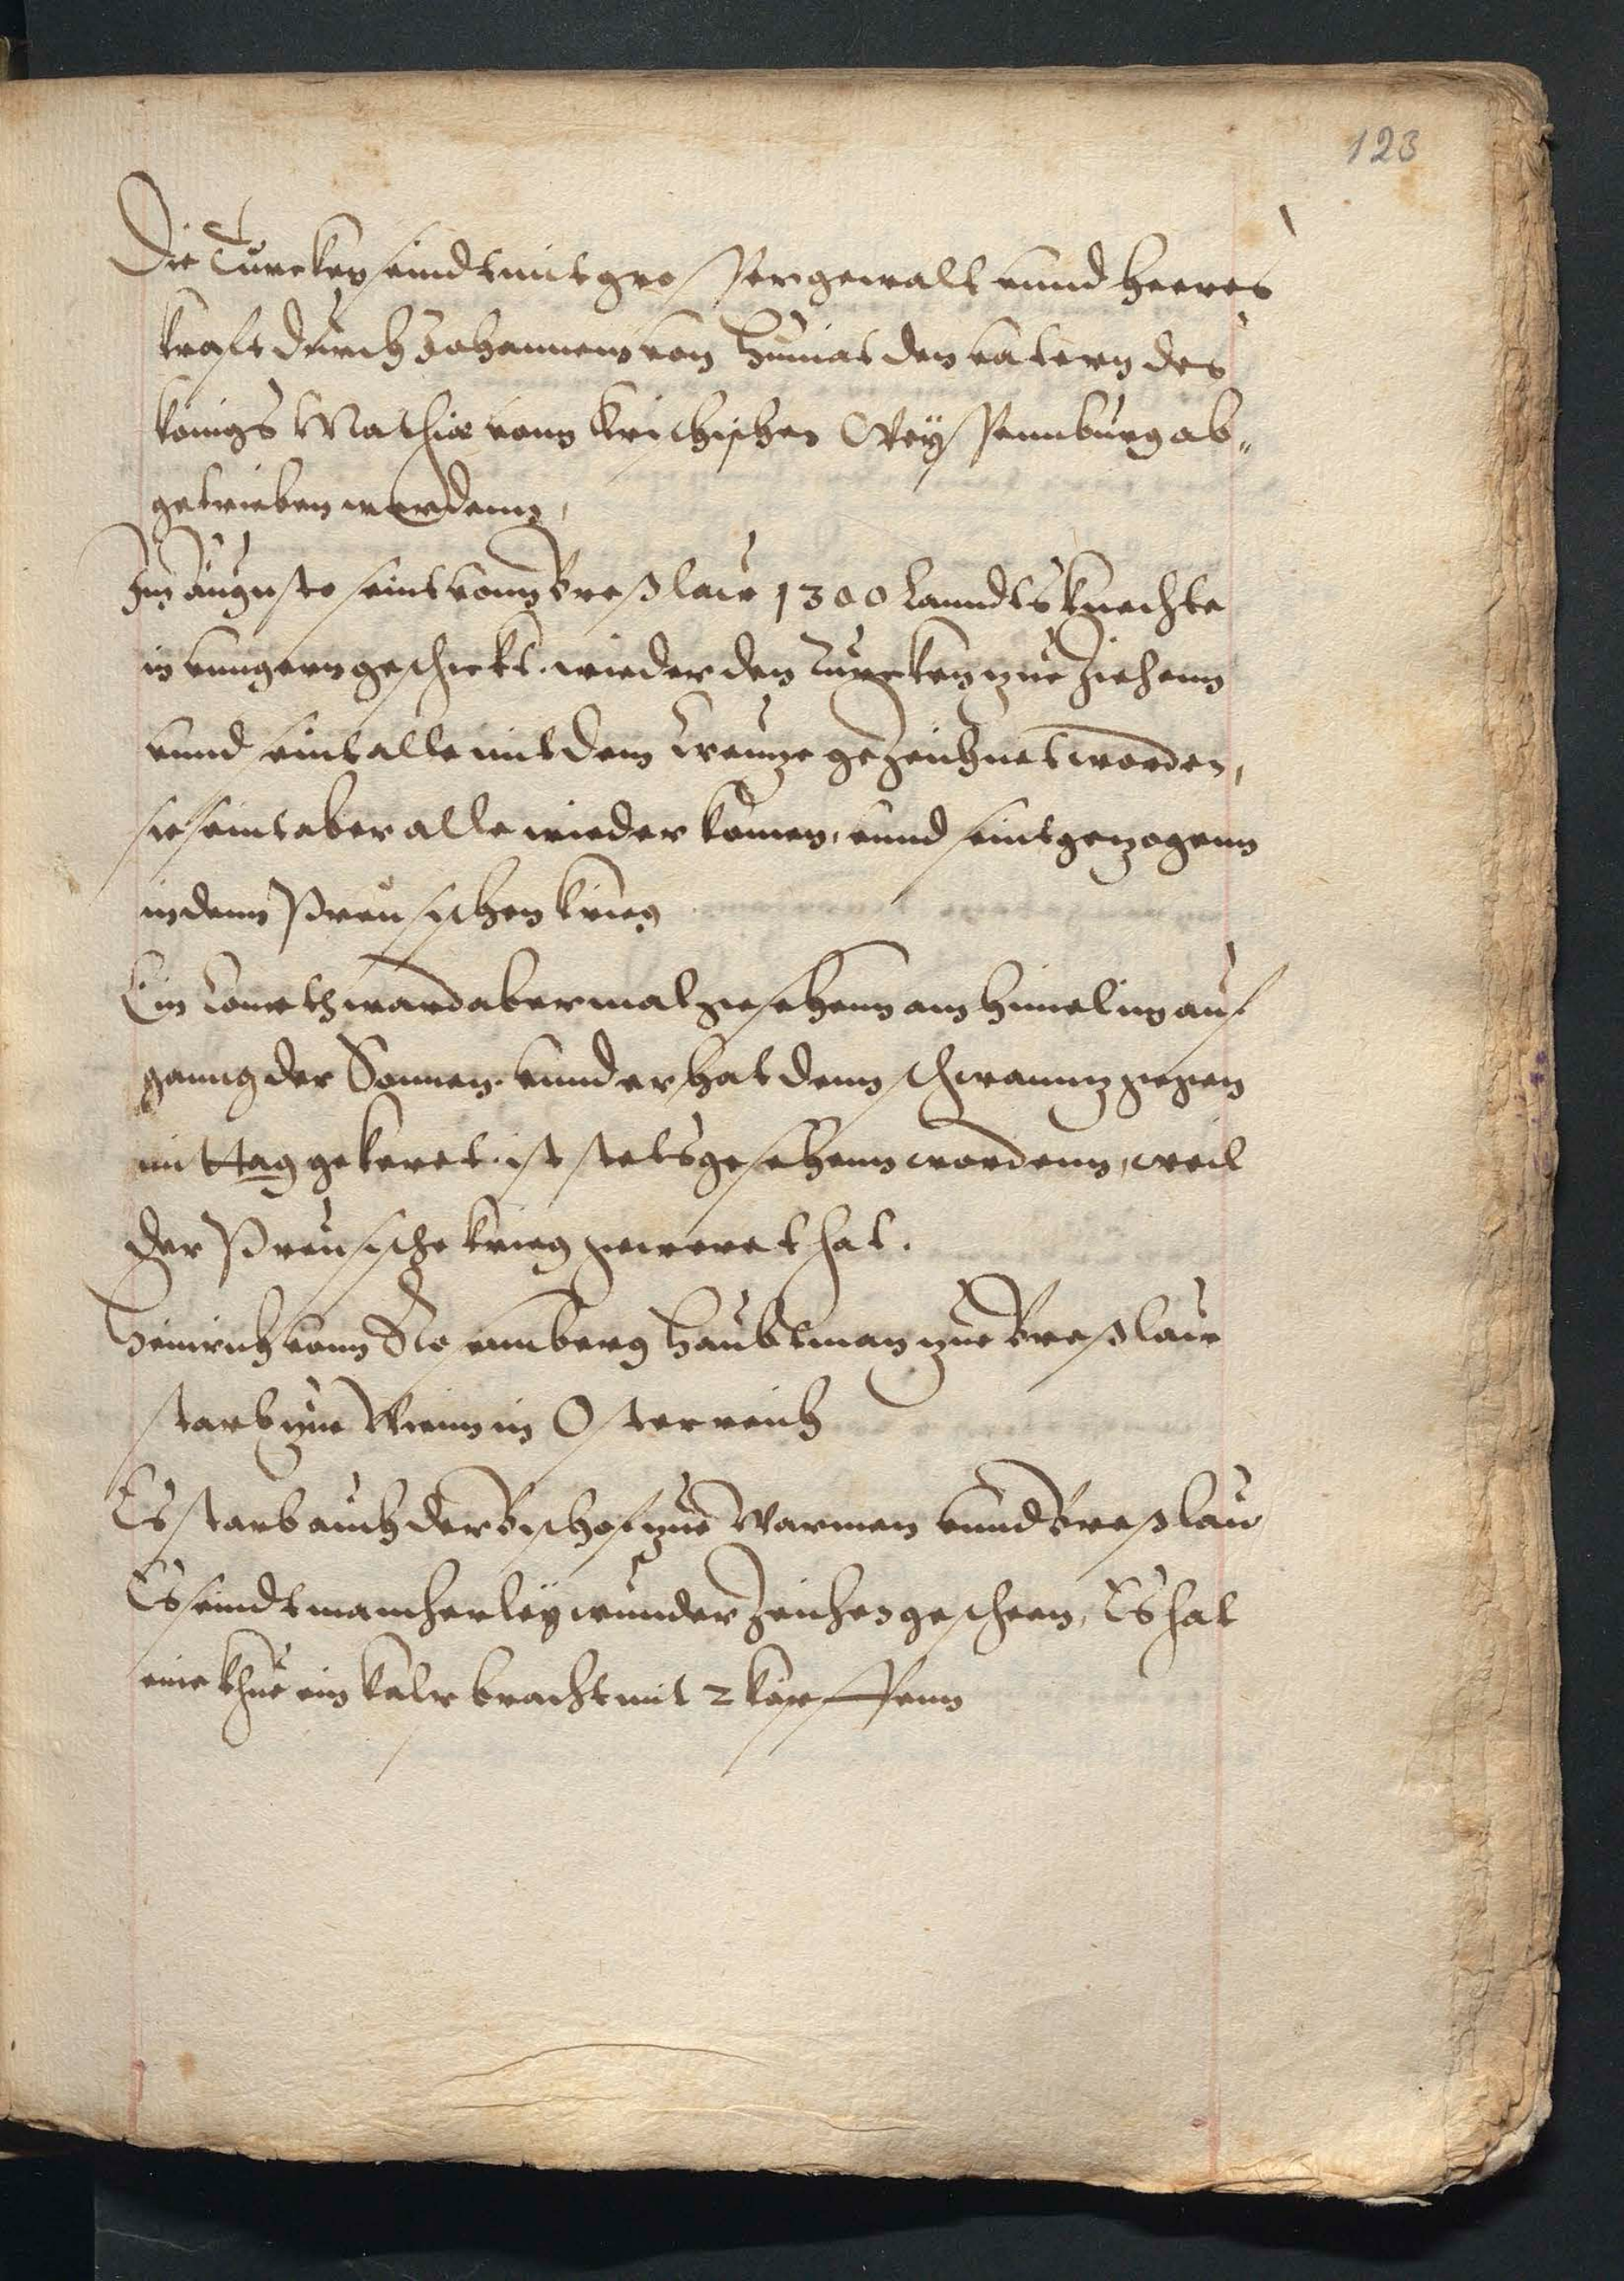 123
Die Turcken seindt mit grosser gewalt vnnd heeres
krafft durch Johannem von Huniat den vatern des
königs Mathiæ vonn Krichischen Weyssennburg ab„
getrieben wordenn,
Im Augusto seint vonn Breßlaw 1300 Lanndtsknechte
in vnngern geschickt wieder den Turcken zue Ziehenn
vnnd seint alle mit dem Creuze geZeichnet worden,
sie seint aber alle wieder komen, vnnd seint gezogenn
in denn Preussischen krieg
Ein Cometh ward abermal gesehenn am himel im auf
ganng der Sonnen vnnd er hat denn schwannz gegen
mittag gekeret ist stets gesehenn wordenn, weil
der Preussische krieg geweret hat.
Heinrich vonn Rosennberg Haubtman zue Breßlaw
starb zue Wienn in Osterreich
Es starb auch der Bischof zue Warmen vnnd Breßlaw
Es seindt mancherley wunder Zeichen gescheen, Es hat
eine khue ein kalb bracht mit 2 köpffenn